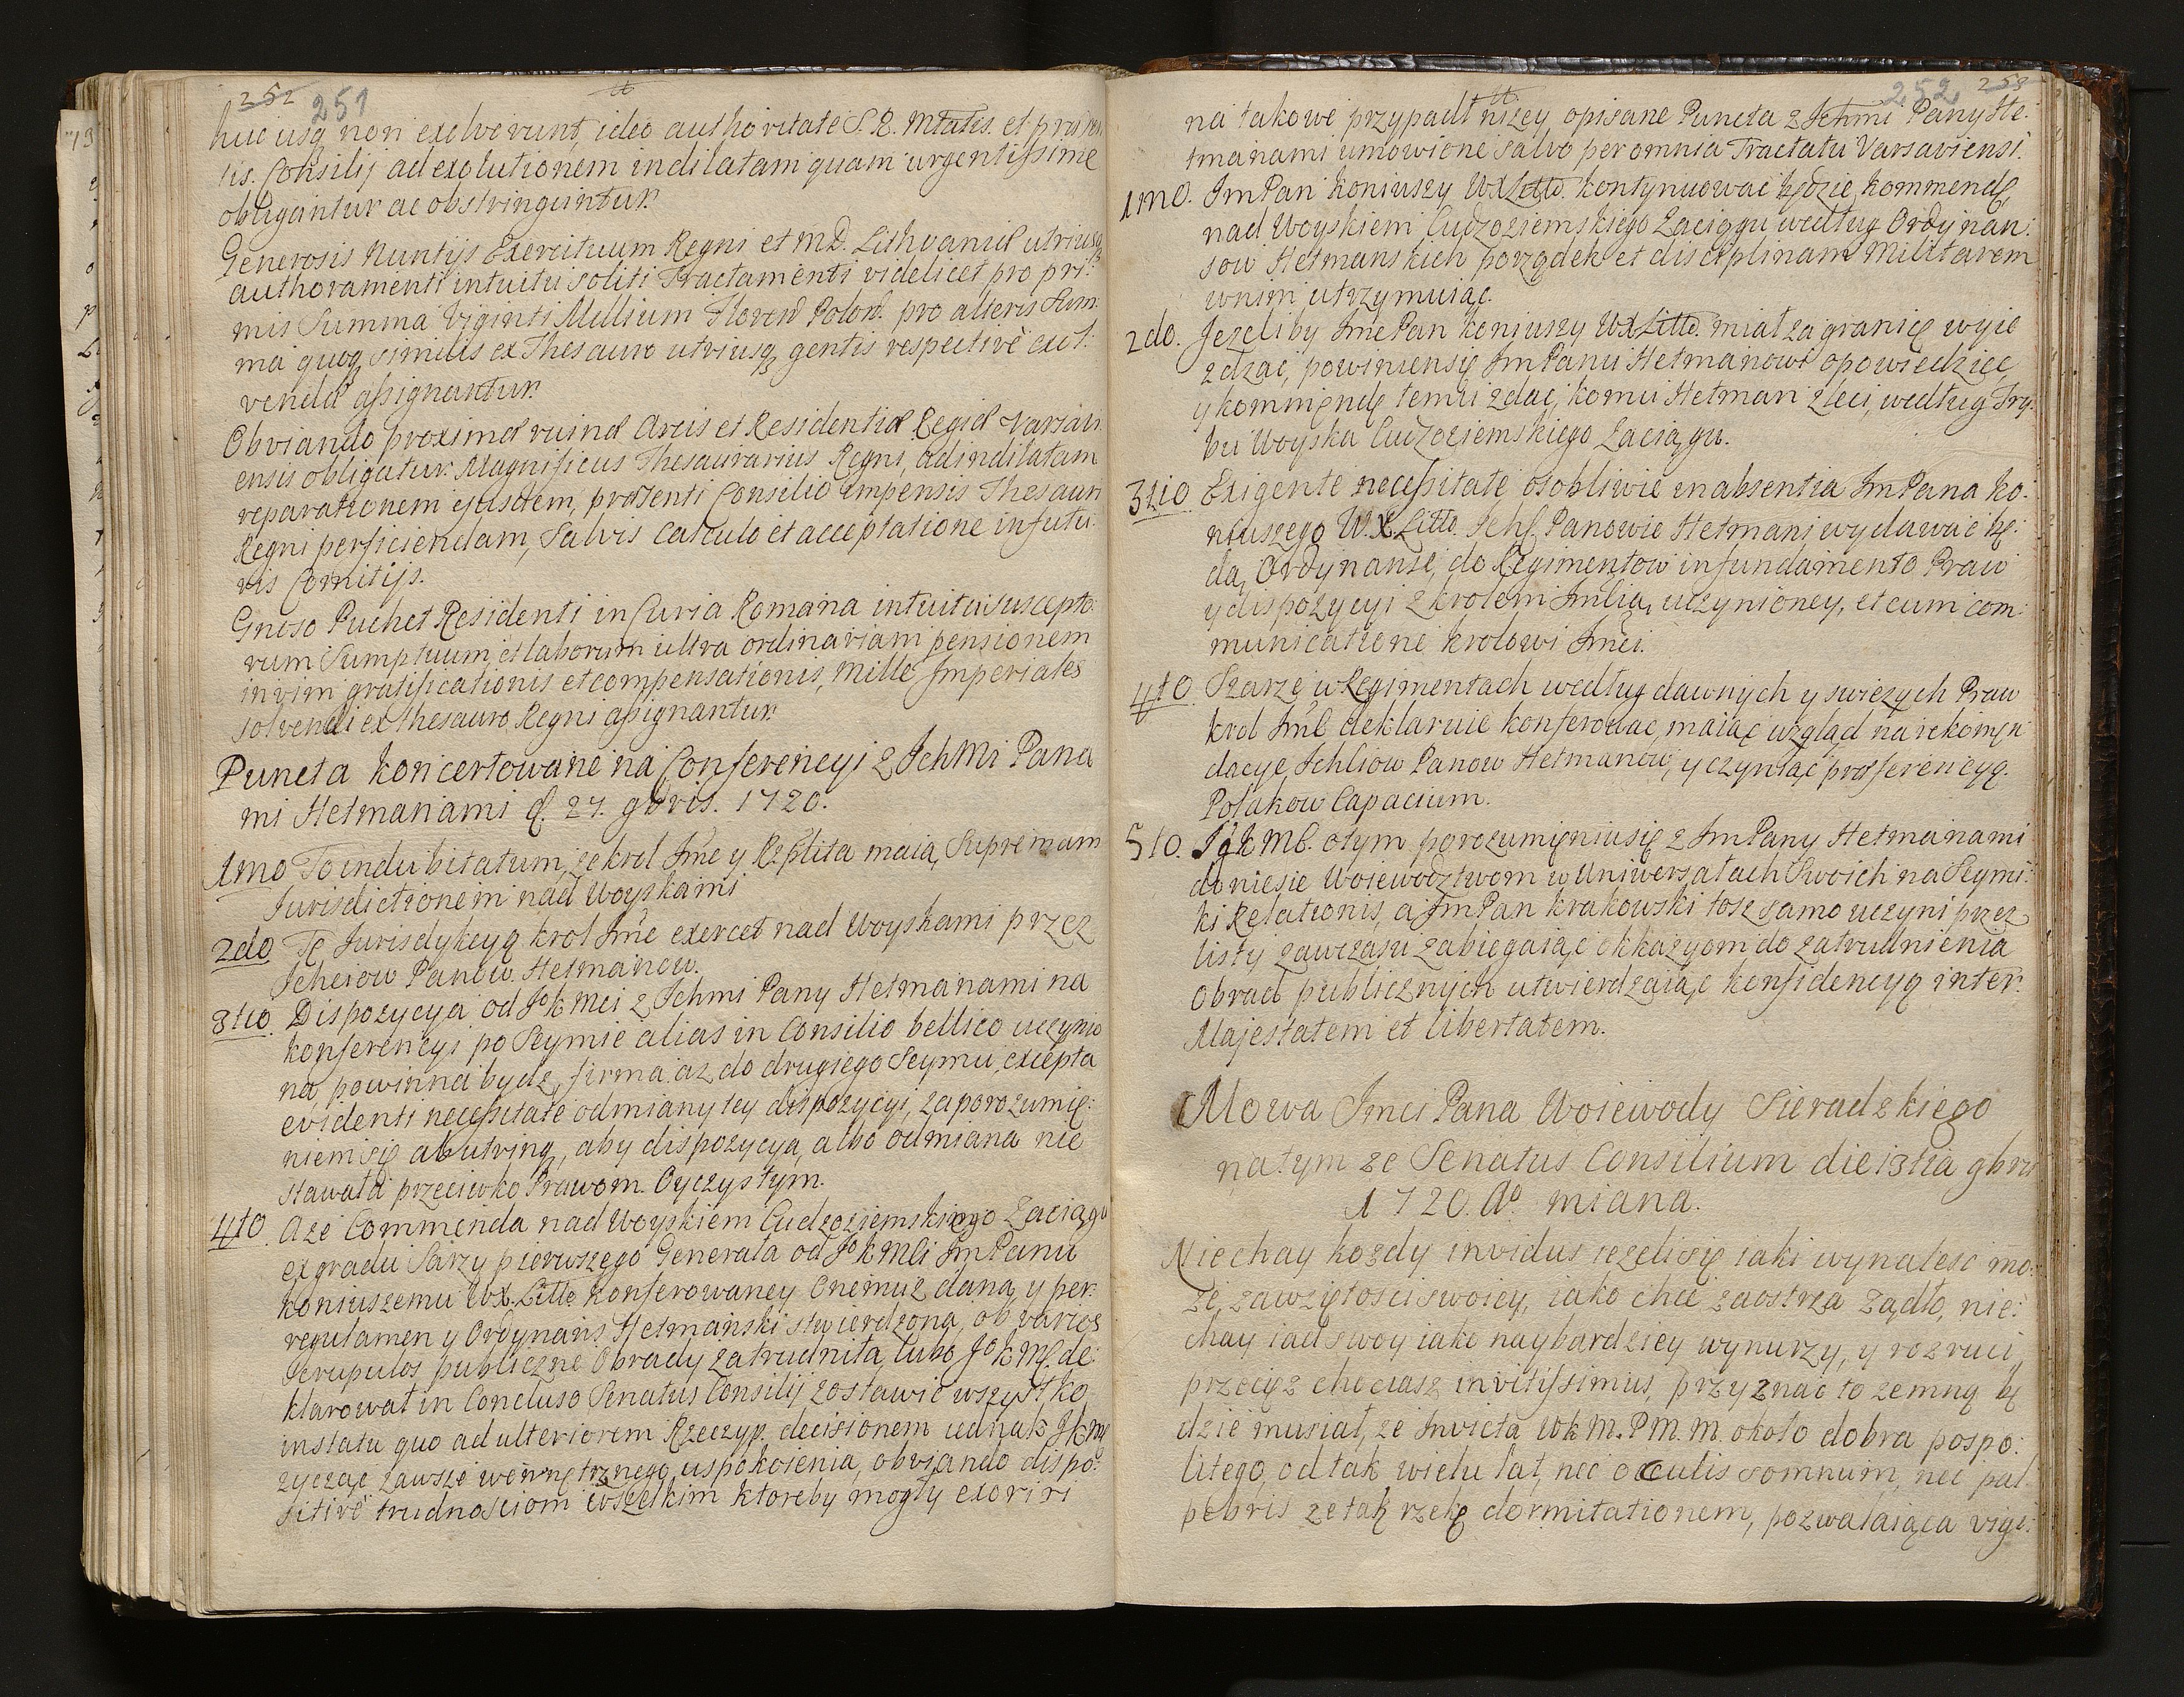 252 251
huc usq non exolverunt, ideo authoritate S. R. Mtatis. et præsen
tis. Consilij ad exolutionem indilatam quam urgentissime
obligantur ac obstringuntur.
Generosis Nuntijs Exercituum Regni et M.D. Lithvaniæ utriusq
authoramenti intuitu soliti Tractamenti videlicet pro pri:
mis Summa Viginti Millium Floren Polon. pro alteris Sum:
ma quoq similis ex Thesauro utriusq gentis respective exol:
venda assignantur.
Obviando proximæ ruinæ Arcis et Residentiæ Regiæ Varsavi
ensis obligatur. Magnificus Thesaurarius Regni, ad indilatam
reparationem ejusdem, præsenti Consilio impensis Thesauri
Regni perficiendam, Salvis Calculo et acceptatione in futu:
ris Comitijs.
Gnoso Puchet Residenti in Curia Romana intuitu suscepto:
rum Sumptuum, et laborum ultra ordinariam pensionem
in vim gratificationis et compensationis, Mille Imperiales
solvendi ex Thesauro Regni assignantur.
Puncta koncertowane na Conferencyi z Ichmi Pana
mi Hetmanami d. 27. gbris. 1720.
1mo To indubitatum, że krol Jmć y Rzplita maią Supremam
Jurisdictionem nad Woyskami
2do Tę Jurisdykcyą krol Jmć exercet nad Woyskami przez
Ichciow Panow. Hetmanow.
3tio. Dispozycya od Jo K Mci z Ichmi Pany Hetmanami na
konferencyi po Seymie alias in Consilio bellico uczynio
na, powinna bydz, firma aż do drugiego Seymu, excepta
evidenti necessitate odmiany tey dispozycyi, za porozumię:
niem się ab utrinq, aby dispozycya, albo odmiana nie
stawała przeciwko Prawom. Oyczystym.
4to. A że Commenda nad Woyskiem Cudzoziemskiego Zaciągu
ex gradu Sarzy pierwszego Generała od Jo K Mci Jm Panu
koniuszemu W.X. Litto konferowaney onemuż dana, y per
regulamen y Ordynans Hetmański stwierdzona, ob varios
Scrupulos publiczne Obrady zatrudniła, lubo Jo K Mć. de:
klarował in Concluso Senatus Consilij zostawić wszystko
in statu quo ad ulteriorem Rzeczyp. decisionem iednak J K Mć
zycząc zawsze wewnętrznego uspokoienia, obviando dispo:
sitivè trudnosciom wszelkim ktoreby mogły exoriri
252 253
na takowe przypadł nizey opisane Puncta z Ichmi Pany He:
tmanami umowione salvo per omnia Tractatu Varsaviensi.
1mo. Jm Pan Koniuszy W X Litto. kontynuować będzie kommendę,
nad Woyskiem Cudzoziemskiego Zaciągu według Ordynan:
sow Hetmanskich porządek et disciplinam Militarem
w nim utrzymuiąc.
2do. Jezeliby Jmć Pan koniuszy W X Litto. miał za granicę wyie
zdzac, powinien się Jm Panu Hetmanowi opowiedziec,
y kommendę temu zdac, komu Hetman zleci, według Try
bu Woyska Cudzoziemskiego Zaciągu.
3tio. Exigente necessitate osobliwie in absentia Jm Pana Ko:
niuszego W.X Litto. Ichſ Panowie Hetmani wydawać bę:
dą, Ordynanse, do Regimentow in fundamento Praw
y dispozycyi z krolem Jmścią, uczynioney, et cum com:
municatione krolowi Jmci.
4to Szarzę w Regimentach według dawnych y swiezych Praw
krol Jmć deklaruie konferować, maiąc wzgląd na rekomęn
dacyę, Ichściow Panow Hetmanow, y czyniąc præferencyą.
Polakow Capacium.
5to. Jo K Mć. o tym porozumięniu się z Jm Pany Hetmanami
doniesie Woiewodztwom w Uniwersałach Swoich na Seymi:
ki Relationis, a Jm Pan krakowski tosz samo uczyni przez
listy zawczasu zabiegaiąc okkazyom do zatrudnienia
Obrad publicznych utwierdzaiąc konfidencyą inter
Majestatem et libertatem.
Mowa Jmci Pana Woiewody Sieradzkiego
na tym ze Senatus Consilium die 13tia gbris
1720. Ao. miana.
Niechay kozdy invidus iezeli się iaki wynalesc mo:
ze, zawziętosci swoiey, iako chce zaostrza żądło, nie:
chay iad swoy iako naybardziey wynurzy, y rozruci,
przecęz chociasz invitissimus, przyznac to zemną bę
dzie musiał, ze Invicta W K M. P M. M. około dobra pospo:
litego, od tak wielu lat, nec occulis somnum, nec pal
pebris ze tak rzekę dormitationem, pozwalaiąca vigi: